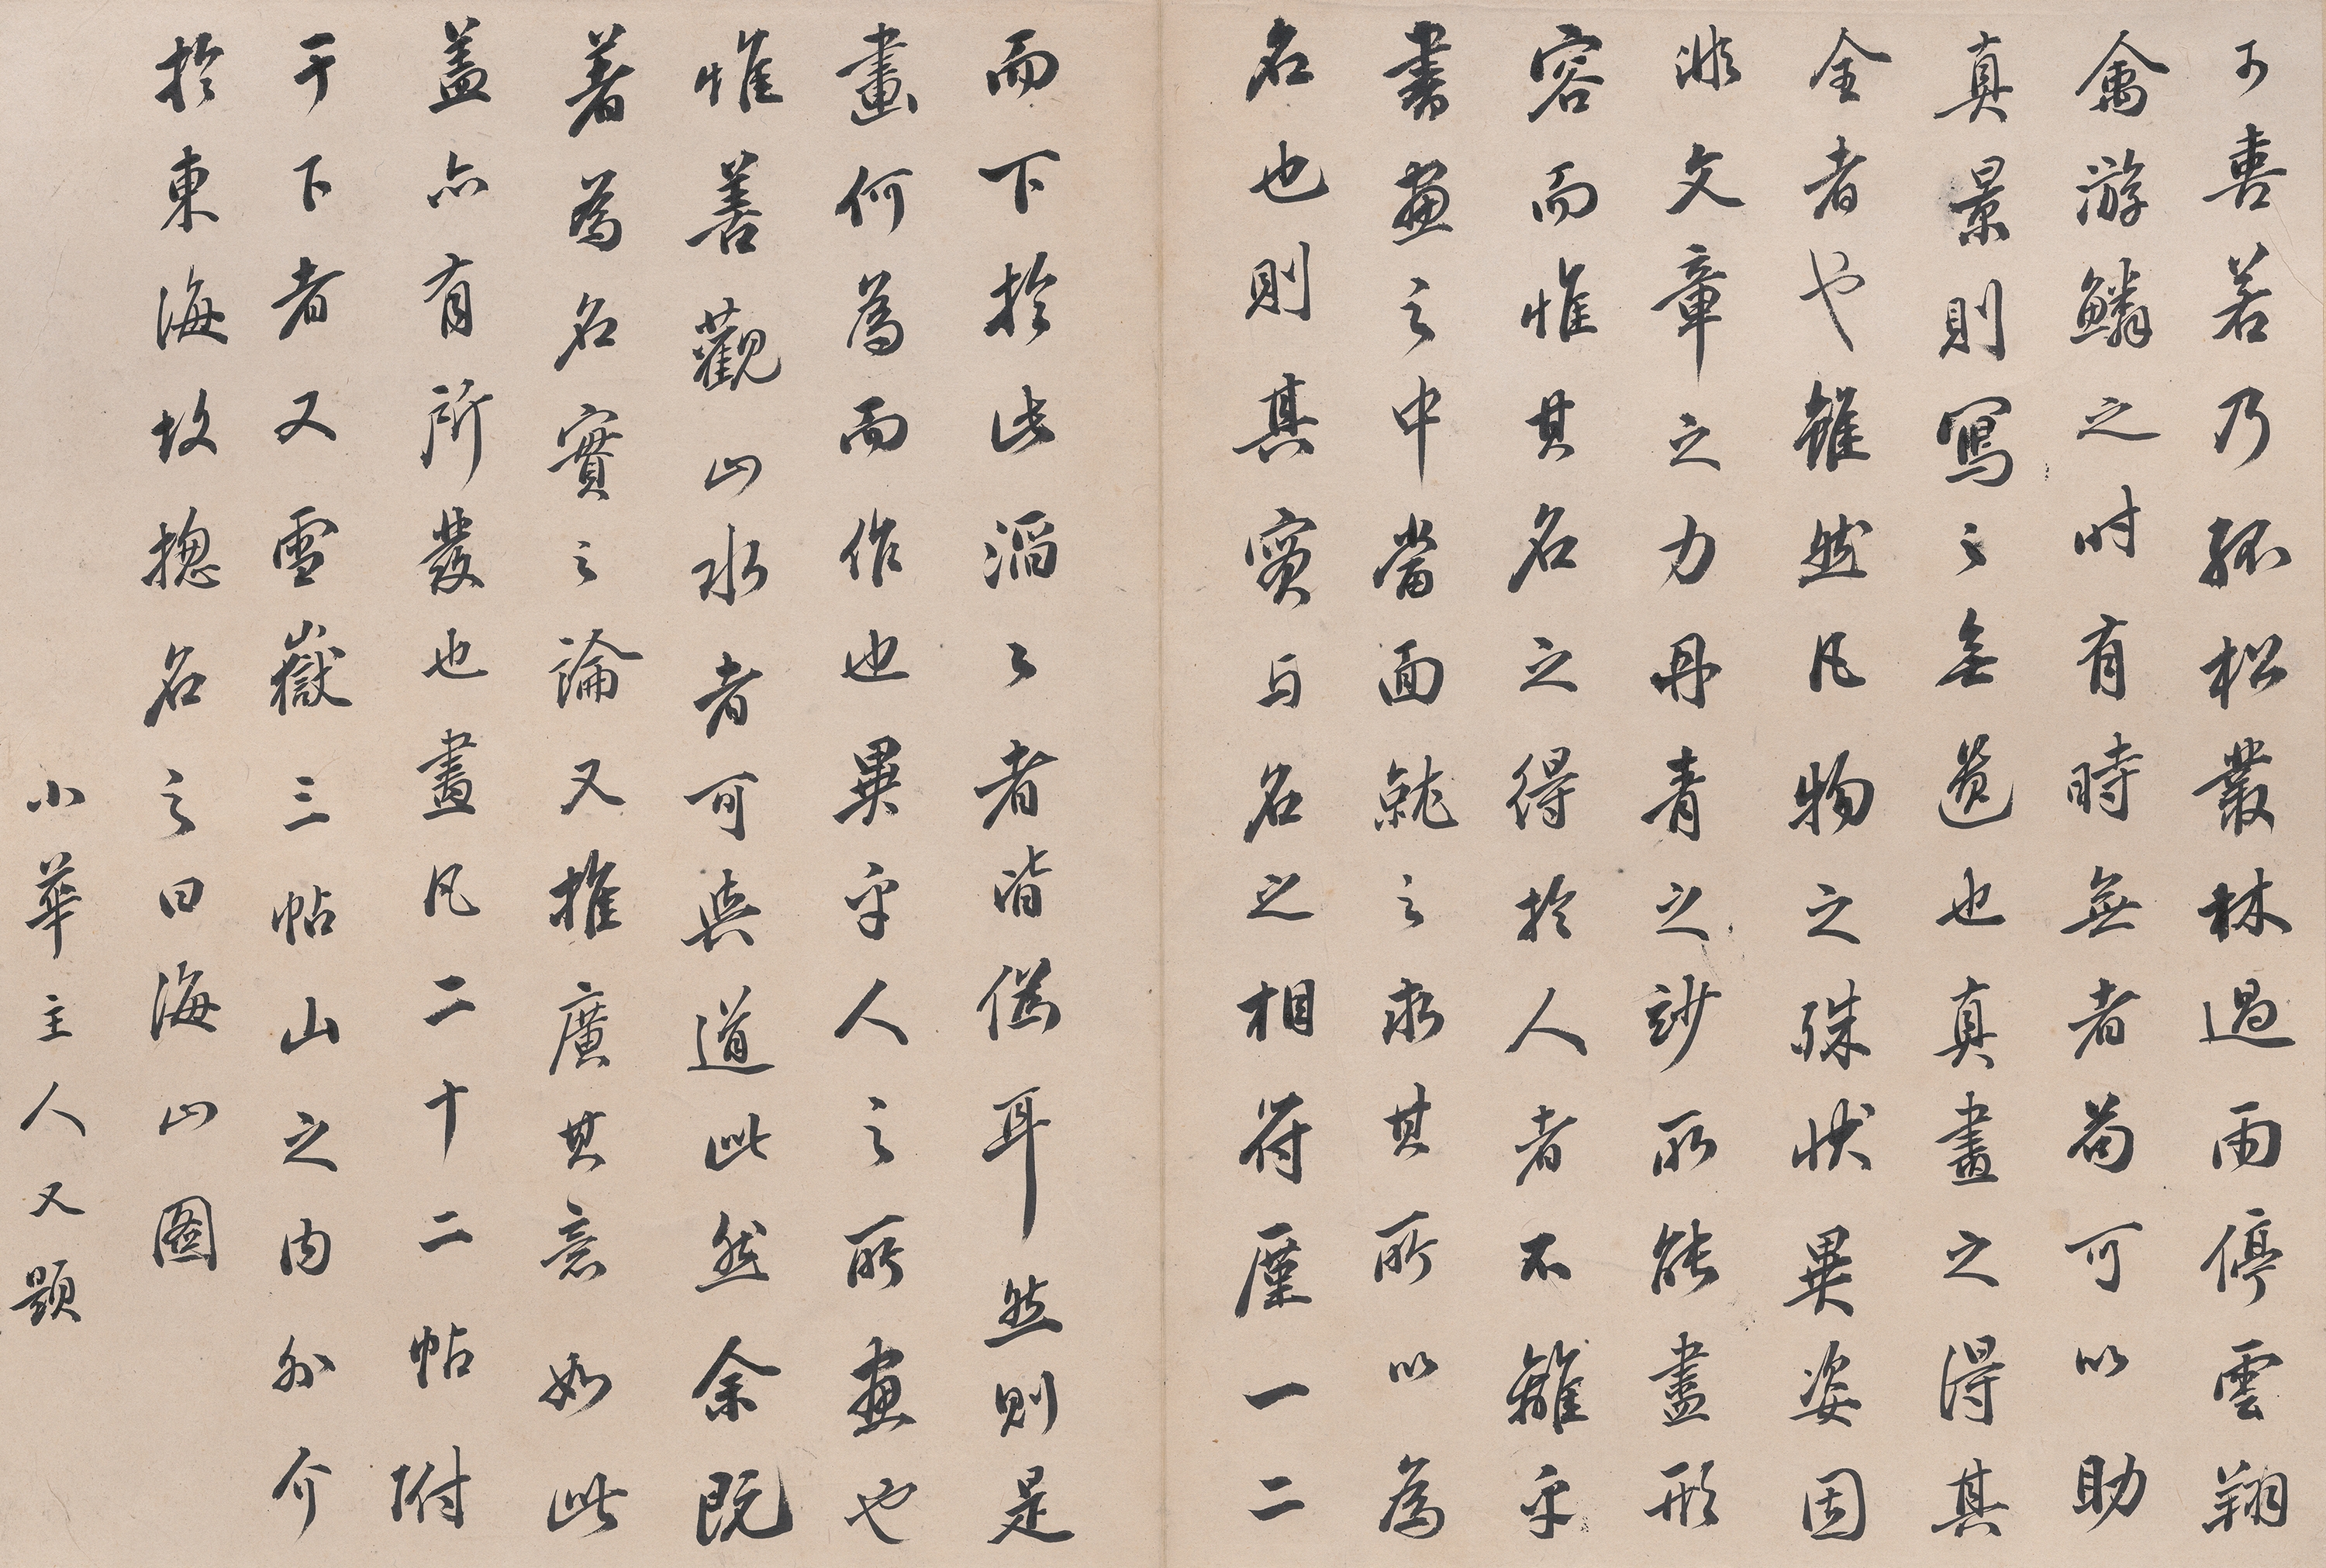 可喜若乃孤松叢林過雨停雲翔
禽游鱗之時有時無者苟可以助
真景則寫之無遺也真畫之得其
全者也雖然凡物之殊状異姿固
非文章之力丹青之玅所能盡形
容而惟其名之得於人者不離乎
書畫之中當面就之求其所以為
名也則其實与名之相符厪一二
而下於此滔〻者皆偽耳然則是
畫何為而作也異乎人之所畫也
惟善觀山水者可與道此然余既
著為名實之論又推廣其意如此
盖亦有所發也畫凡二十二帖附
于下者又雪嶽三帖山之内外介
於東海故摠名之曰海山圖
小華主人又題